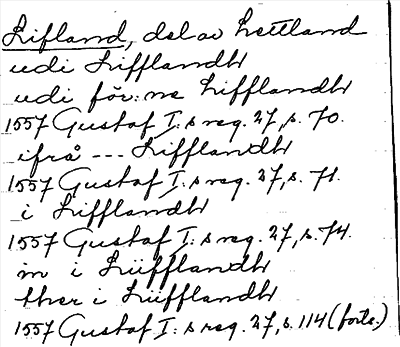 Lifland, del av Lettland
udi Lifflandh
udi för:ne Lifflandh
1557 Gustaf I:s reg. 27, s. 70.
ifrå --- Lifflandh
1557 Gustaf I:s reg. 27, s. 71.
i Lifflandh
1557 Gustaf I:s reg. 27, s. 74.
in i Lüfflandh
ther i Lüfflandh
1557 Gustaf I:s reg. 27, s. 114 (forts.)